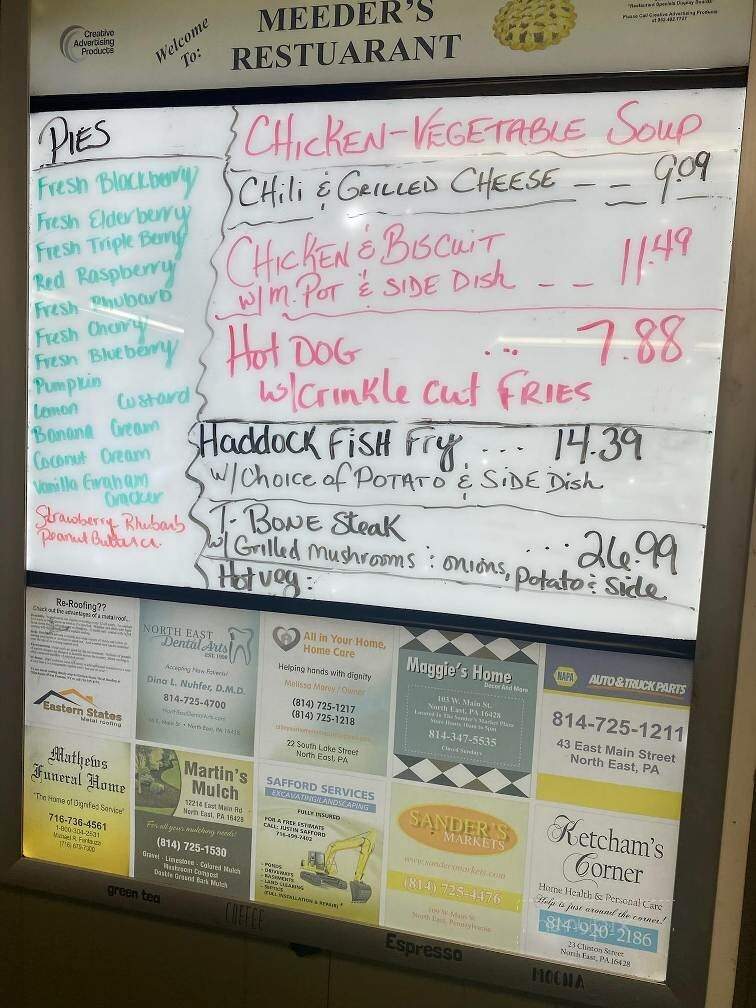 Creative
Advertising
Products
Welcome
To:
MEEDER'S
RESTUARANT
"Restaurant Specials Display Boards"
Please Call Creative Advertising Products
PIES
Fresh Blackberry
Fresh Elderberry
Fresh Triple Berry
Red Raspberry
Fresh Rhubarb
Fresh Cherry
Fresh Blueberry
Pumpkin
Lemon Custard
Banana Cream
Coconut Cream
Vanilla Graham
Cracker
Strawberry Rhubarb
CHICKEN-VEGETABLE SOUP
CHili & GRILLED CHEESE -- 9.09
CHICKEN & BISCUIT
w/m. POT & SIDE DISH -- 11.49
Hot DOG ... 7.88
w/crinkle cut FRIES
HADDOCK FISH Fry ... 14.39
w/Choice of POTATO & SIDE DISH
T-BONE Steak ... 26.99
w/ Grilled mushrooms : onions, potato : side
Hot veg:
Re-Roofing??
Check out the advantages of a metal roof...
Eastern States
Metal roofing
NORTH EAST
Dental Arts
EST. 1990
Accepting New Patients!
Dina L. Nuhfer, D.M.D.
814-725-4700
All in Your Home,
Home Care
Helping hands with dignity
Melissa Morey / Owner
(814) 725-1217
(814) 725-1218
22 South Lake Street
North East, PA
Maggie's Home
Decor And More
103 W. Main St.
North East, PA 16428
814-347-5535
Closed Sundays
NAPA
AUTO & TRUCK PARTS
814-725-1211
43 East Main Street
North East, PA
Mathews
Funeral Home
"The Home of Dignified Service"
716-736-4561
Martin's
Mulch
12214 East Main Rd
North East, PA 16428
For all your mulching needs!
(814) 725-1530
Gravel - Limestone - Colored Mulch
Mushroom Compost
Double Ground Bark Mulch
SAFFORD SERVICES
EXCAVATING/LANDSCAPING
FULLY INSURED
FOR A FREE ESTIMATE
CALL: JUSTIN SAFFORD
716-499-7402
- PONDS
- DRIVEWAYS
- BASEMENTS
- LAND CLEARING
- SEPTICS
(FULL INSTALLATION & REPAIR)
SANDER'S
MARKETS
www.sandersmarkets.com
(814) 725-4476
North East, Pennsylvania
Ketcham's
Corner
Home Health & Personal Care
Help is just around the corner!
814-920-2186
23 Clinton Street
North East, PA 16428
green tea
COFFEE
Espresso
MOCHA